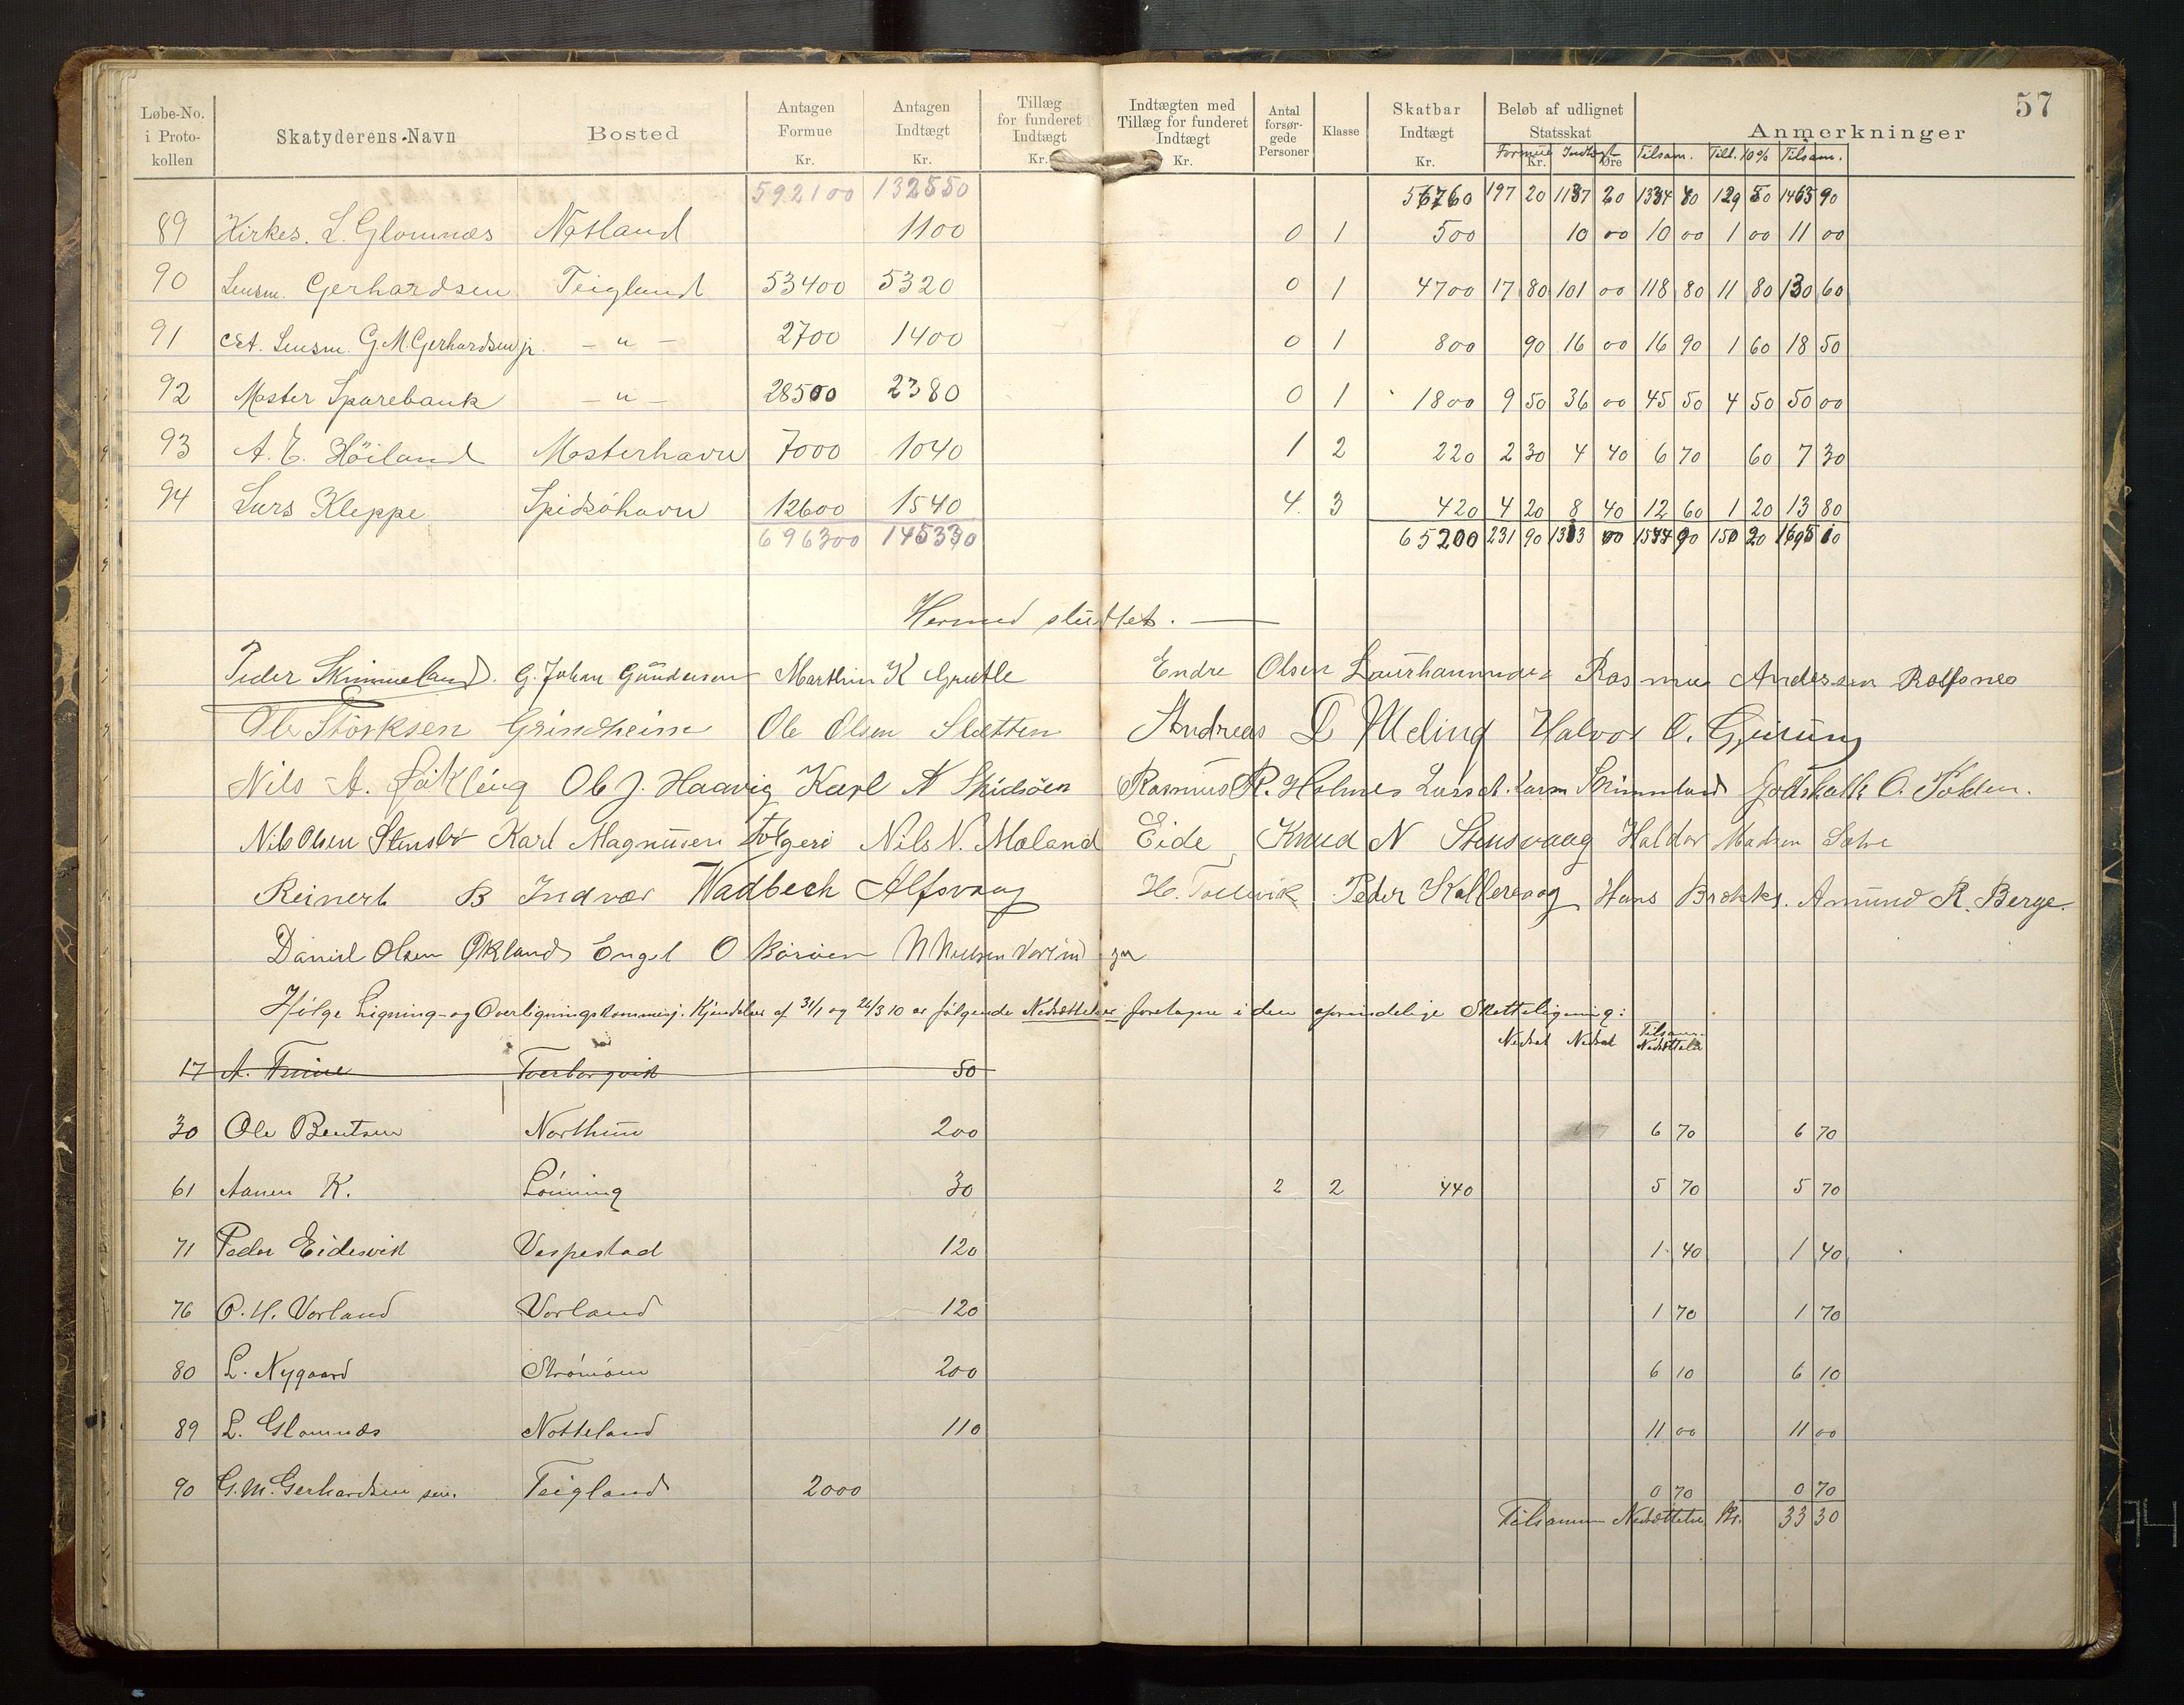 57
Løbe-No. i Protokollen | Skatyderens Navn | Bosted | Antagen Formue Kr. | Antagen Indtægt Kr. | Tillæg for funderet Indtægt Kr. | Indtægten med Tillæg for funderet Indtægt Kr. | Antal forsørgede Personer | Klasse | Skatbar Indtægt Kr. | Beløb af udlignet Statsskat Kr. Øre | Anmerkninger
Formue Indtægt Tilsam. Till. 10% Tilsam.
592100 132550 56760 197 20 1137 60 1334 80 129 50 1463 90
89 Kirkes. L. Glomnæs Notland 1100 0 1 500 10 00 10 00 1 00 11 00
90 Lensm. Gerhardsen Teigland 53400 5320 0 1 4700 17 80 101 00 118 80 11 80 130 60
91 Lensm. G.M. Gerhardsen jr. - " - 2700 1400 0 1 800 90 16 00 16 90 1 60 18 50
92 Moster Sparebank - " - 28500 2380 0 1 1800 9 50 36 00 45 50 4 50 50 00
93 A. E. Höiland Mosterhavn 7000 1040 1 2 220 2 30 4 40 6 70 60 7 30
94 Lars Kleppe Spidsöhavn 12600 1540 4 3 420 4 20 8 40 12 60 1 20 13 80
696300 145330 65200 231 90 1313 00 1544 90 150 20 1695 10
Hermed sluttet.
Peder Skimmeland. G. Johan Gundersen Marthin K Grutle Endre Olsen Rasmus Andersen Rolfsnes
Ole Størksen Grindheim Ole Olsen Sletten Andreas D Meling Halvor O.
Nils A. Ole J. Haavig Karl A Spidsöen Rasmus R. Holmes Lars A. Larsn Skimmland O.
Nils Olsen Karl Magnusen Nils N. Moland Eide Knud N Stensvaag Haldor Madsen
Reinert B Indvær Wadbech Alfsvaag H. Tollevik Peder Kallevaag Hans Amund R. Berge.
Daniel Olsen Økland Engel O Böröen
Ifölge Ligning- og Overligningskommisj. Kjendelser af 31/1 og 26/3 10 er følgende Nedsættelser foretagne i den oprindelige Skatteligning:
Nedsat Nedsat Tilsam. Nedsættelse
17 A. 50
30 Ole Bentsen Northun 200 6 70 6 70
61 Aanen K. Lönning 30 2 2 440 5 70 5 70
71 Peder Eidesvik Vespestad 120 1 40 1 40
76 P. H. Vorland Vorland 120 1 70 1 70
80 L. Nygaard Strömöen 200 6 10 6 10
89 L. Glomnæs Notteland 110 11 00 11 00
90 G.M. Gerhardsen sen. Teigland 2000 0 70 0 70
Tilsammen Nedsættelse Kr. 33 30